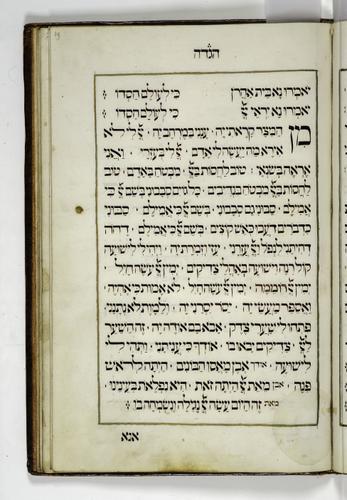 הגדה
יאמרו נא בית אהרן כי לעולם חסדו :
יאמרו נא יראי יי כי לעולם חסדו :
מן המצר קראתי יה · ענני במרחב יה · יי לי לא
אירא מה יעשה לי אדם · יי לי בעזרי · ואני
אראה בשנאי · טוב לחסות ביי · מבטח באדם · טוב
לחסות ביי מבטח בנדיבים · כל גוים סבבוני בשם יי כי
אמילם · סבוני גם סבבוני · בשם יי כי אמילם · סבוני
כדברים דעכו כאש קוצים · בשם יי כי אמילם · דחה
דחיתני לנפל ויי עזרני · עזי וזמרת יה · ויהי לי לישועה
קול רנה וישועה באהלי צדיקים · ימין יי עשה חיל ·
ימין יי רוממה · ימין יי עשה חיל · לא אמות כי אחיה
ואספר מעשי יה · יסר יסרני יה · ולמות לא נתנני
פתחו לי שערי צדק · אבא בם אודה יה · זה השער
ליי · צדיקים יבאו בו · אודך כי עניתני · ותהי לי
לישועה · אודך אבן מאסו הבונים · היתה לראש
פנה · אבן מאת יי היתה זאת · היא נפלאת בעינינו
מאת זה היום עשה יי נגילה ונשמחה בו :
אנא